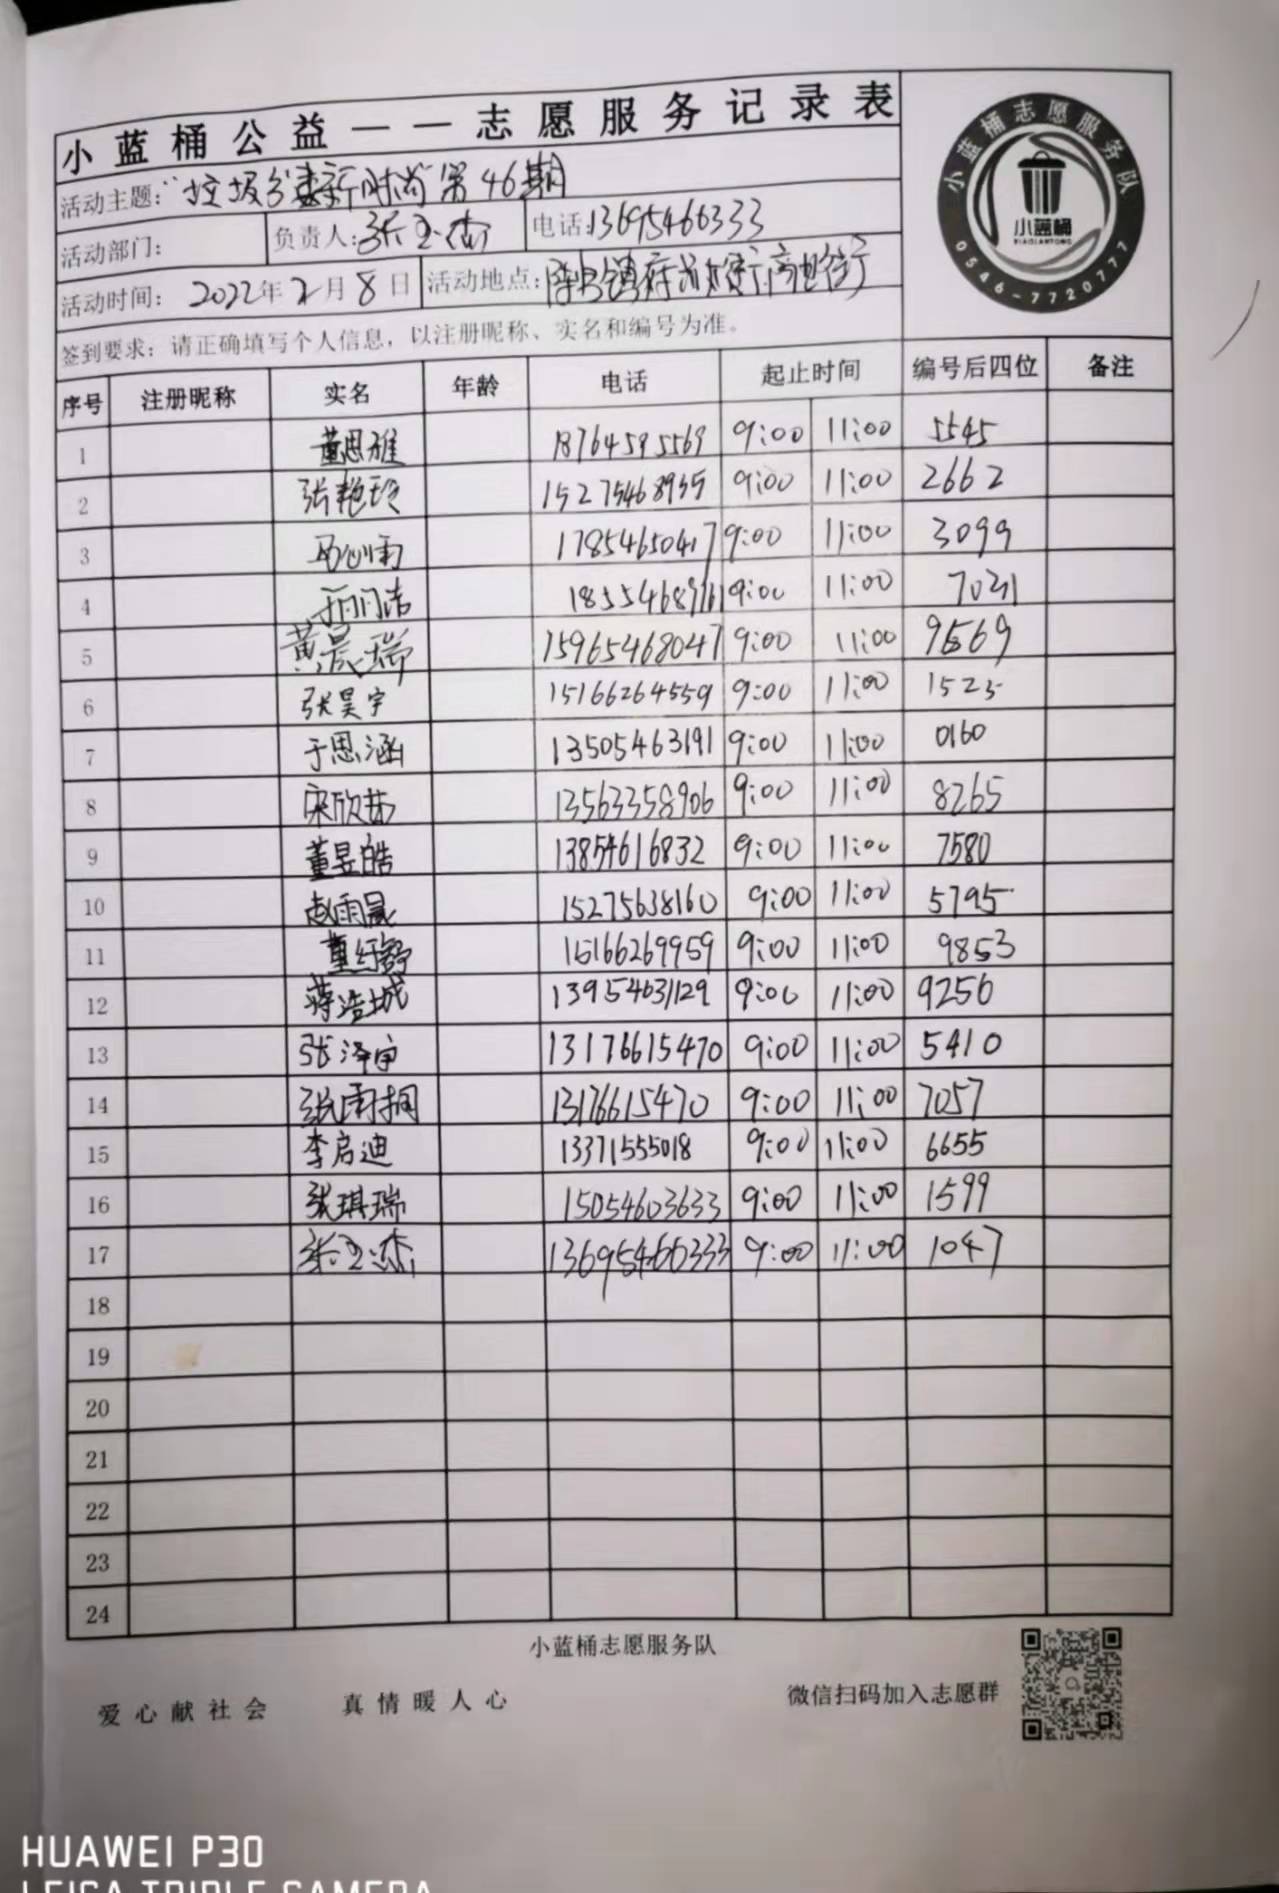 小蓝桶公益——志愿服务记录表
活动主题：“垃圾分类新时尚”第46期
活动部门： 负责人：张玉杰 电话：13695466333
活动时间：2022年2月8日 活动地点：
签到要求：请正确填写个人信息，以注册昵称、实名和编号为准。
小蓝桶志愿服务队
小蓝桶
XIAOLANTONG
0546-7720777
序号 注册昵称 实名 年龄 电话 起止时间 编号后四位 备注
1 董思雅 18764595569 9:00 11:00 5545
2 张艳玲 15275468955 9:00 11:00 2662
3 马心雨 17854650417 9:00 11:00 3099
4 9:00 11:00
5 黄晨瑞 15965468047 9:00 11:00 9569
6 张昊宇 15166264559 9:00 11:00 1523
7 于思涵 13505463191 9:00 11:00 0160
8 宋欣茹 13563358906 9:00 11:00 8265
9 董昱皓 13854616832 9:00 11:00 7580
10 赵雨晨 15275638160 9:00 11:00 5795
11 董纾舒 15166269959 9:00 11:00 9853
12 蒋浩城 13954631129 9:00 11:00 9256
13 张泽宙 13176615470 9:00 11:00 5410
14 张雨桐 13176615470 9:00 11:00 7057
15 李启迪 13371555018 9:00 11:00 6655
16 张琪瑞 15054603633 9:00 11:00 1599
17 张玉杰 13695466333 9:00 11:00 1047
18
19
20
21
22
23
24
小蓝桶志愿服务队
爱心献社会 真情暖人心 微信扫码加入志愿群
HUAWEI P30
LEICA TRIPLE CAMERA